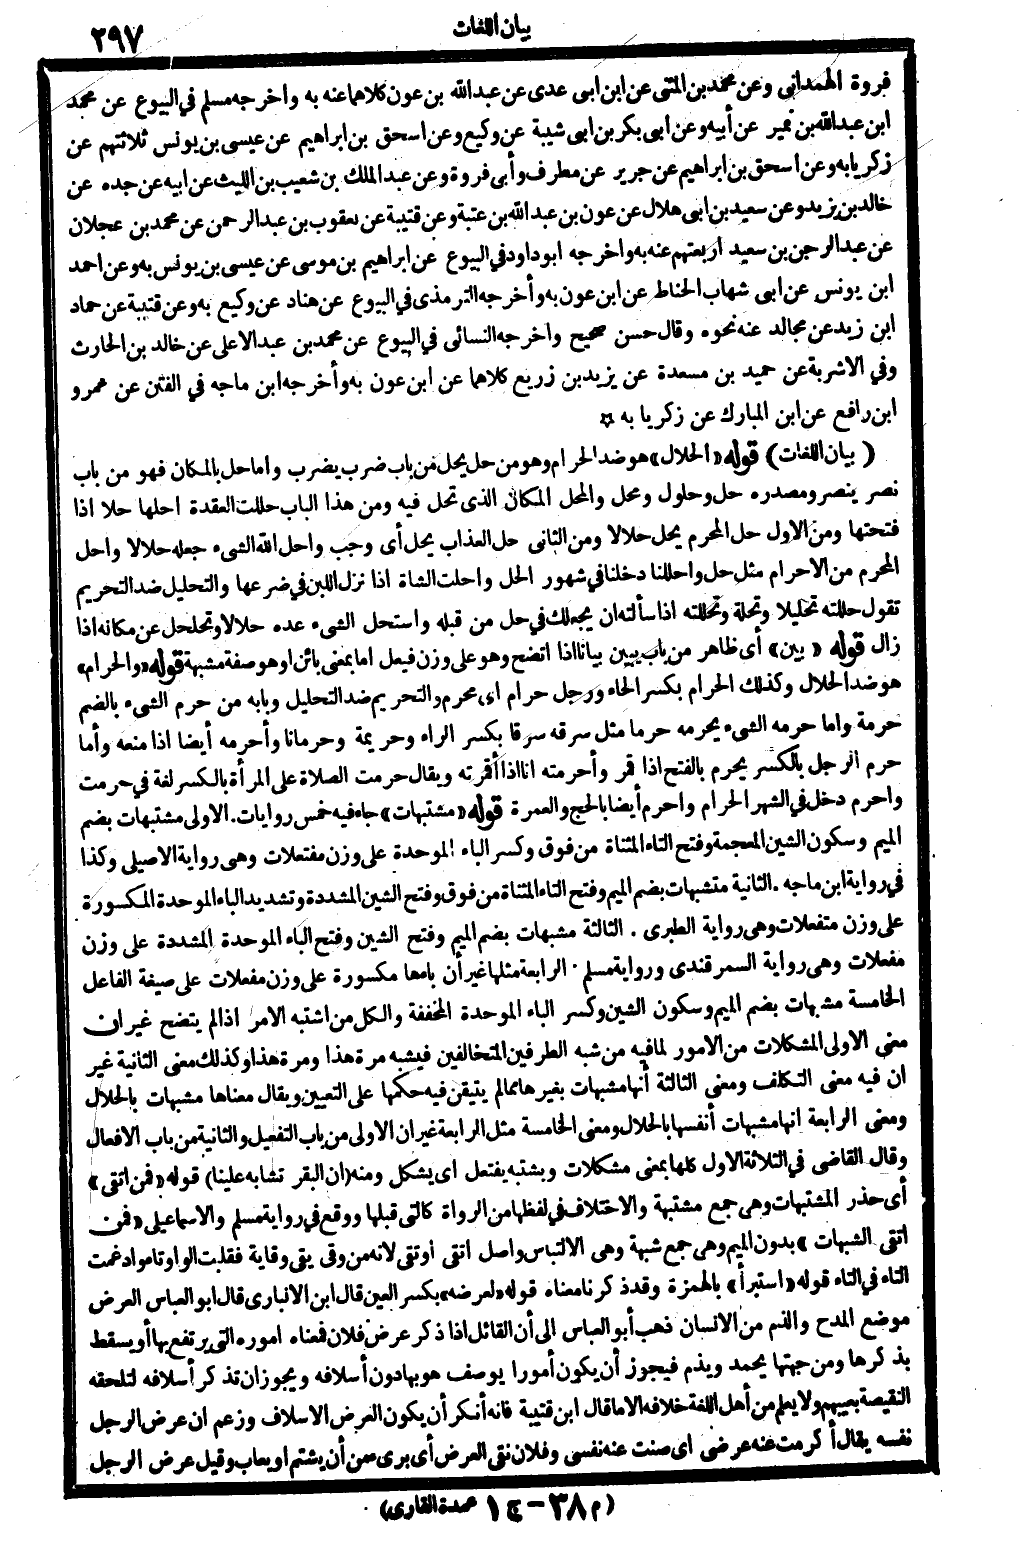 بيان اللغات
٢٩٧
فروة الهمداني وعن محمد بن المثنى عن ابن ابى عدى عن عبد الله بن عون كلاهما عنه به واخرجه مسلم في البيوع عن محمد
ابن عبد الله بن نمير عن أبيه وعن ابى بكر بن ابى شيبة عن وكيع وعن اسحق بن ابراهيم عن عيسى بن يونس ثلاثتهم عن
زكريا به وعن اسحق بن ابراهيم عن جرير عن مطرف وأبى فروة وعن عبد الملك بن شعيب بن الليث عن ابيه عن جده عن
خالد بن يزيد وعن سعيد بن ابى هلال عن عون بن عبد الله بن عتبة وعن قتيبة عن يعقوب بن عبد الرحمن عن محمد بن عجلان
عن عبد الرحمن بن سعيد اربعتهم عنه به واخرجه ابو داود في البيوع عن ابراهيم بن موسى عن عيسى بن يونس به وعن احمد
ابن يونس عن ابى شهاب الحناط عن ابن عون به وأخرجه الترمذى في البيوع عن هناد عن وكيع به وعن قتيبة عن حماد
ابن زيد عن مجالد عنه نحوه وقال حسن صحيح واخرجه النسائى في البيوع عن محمد بن عبد الاعلى عن خالد بن الحارث
وفي الاشربة عن حميد بن مسعدة عن يزيد بن زريع كلاهما عن ابن عون به وأخرجه ابن ماجه في الفتن عن عمرو
ابن رافع عن ابن المبارك عن زكريا به ☆
( بيان اللغات ) قوله «الحلال» هو ضد الحرام وهو من حل يحل من باب ضرب يضرب واما حل بالمكان فهو من باب
نصر ينصر ومصدره حل وحلول ومحل والمحل المكان الذى تحل فيه ومن هذا الباب حللت العقدة احلها حلا اذا
فتحتها ومن الاول حل المحرم يحل حلالا ومن الثانى حل العذاب يحل أى وجب واحل الله الشىء جعله حلالا واحل
المحرم من الاحرام مثل حل واحللنا دخلنا في شهور الحل واحلت الشاة اذا نزل اللبن في ضرعها والتحليل ضد التحريم
تقول حللته تحليلا وتحلة وتحللته اذا سألته ان يجعلك في حل من قبله واستحل الشىء عده حلالا وتحلحل عن مكانه اذا
زال قوله « بين » أى ظاهر من باب يبين بيانا اذا اتضح وهو على وزن فيعل اما بمعنى بائن او هو صفة مشبهة قوله «والحرام»
هو ضد الحلال وكذلك الحرام بكسر الحاء ورجل حرام اى محرم والتحريم ضد التحليل وبابه من حرم الشىء بالضم
حرمة واما حرمه الشىء يحرمه حرما مثل سرقه سرقا بكسر الراء وحريمة وحرمانا وأحرمه أيضا اذا منعه وأما
حرم الرجل بالكسر يحرم بالفتح اذا قمر وأحرمته انا اذا أقمرته ويقال حرمت الصلاة على المرأة بالكسر لغة في حرمت
واحرم دخل في الشهر الحرام واحرم أيضا بالحج والعمرة قوله «مشتبهات» جاء فيه خمس روايات. الاولى مشتبهات بضم
الميم وسكون الشين المعجمة وفتح التاء المثناة من فوق وكسر الباء الموحدة على وزن مفتعلات وهى رواية الاصيلى وكذا
في رواية ابن ماجه . الثانية متشبهات بضم الميم وفتح التاء المثناة من فوق وفتح الشين المشددة وتشديد الباء الموحدة المكسورة
على وزن متفعلات وهى رواية الطبرى . الثالثة مشبهات بضم الميم وفتح الشين وفتح الباء الموحدة المشددة على وزن
مفعلات وهى رواية السمرقندى ورواية مسلم . الرابعة مثلها غير أن باءها مكسورة على وزن مفعلات على صيغة الفاعل
الخامسة مشبهات بضم الميم وسكون الشين وكسر الباء الموحدة المخففة والكل من اشتبه الامر اذا لم يتضح غير ان
معنى الاولى المشكلات من الامور لما فيه من شبه الطرفين المتخالفين فيشبه مرة هذا ومرة هذا وكذلك معنى الثانية غير
ان فيه معنى التكلف ومعنى الثالثة أنها مشبهات بغيرها مما لم يتيقن فيه حكمها على التعيين ويقال معناها مشبهات بالحلال
ومعنى الرابعة انها مشبهات أنفسها بالحلال ومعنى الخامسة مثل الرابعة غير ان الاولى من باب التفعيل والثانية من باب الافعال
وقال القاضى في الثلاثة الاول كلها بمعنى مشكلات ويشتبه يفتعل اى يشكل ومنه (ان البقر تشابه علينا) قوله «فمن اتقى»
أى حذر المشتبهات وهى جمع مشتبهة والاختلاف في لفظها من الرواة كالتى قبلها ووقع في رواية مسلم والاسماعيلى «فمن
اتقى الشبهات » بدون الميم وهى جمع شبهة وهى الالتباس واصل اتقى اوتقى لانه من وقى يقى وقاية فقلبت الواو تاء وادغمت
التاء في التاء قوله «استبرأ» بالهمزة وقد ذكرنا معناه قوله «لعرضه» بكسر العين قال ابن الانبارى قال ابو العباس العرض
موضع المدح والذم من الانسان ذهب أبو العباس الى أن القائل اذا ذكر عرض فلان فمعناه اموره التى يرتفع بها أو يسقط
بذكرها ومن جهتها يحمد ويذم فيجوز أن يكون أمورا يوصف هو بها دون أسلافه ويجوز ان تذكر أسلافه لتلحقه
النقيصة بعيبهم ولا يعلم من أهل اللغة خلافه الا ما قال ابن قتيبة فانه أنكر أن يكون العرض الاسلاف وزعم ان عرض الرجل
نفسه يقال أكرمت عنه عرضى اى صنت عنه نفسى وفلان نقى العرض أى برىء من أن يشتم او يعاب وقيل عرض الرجل
(م ٣٨ - ج ١ عمدة القارى)